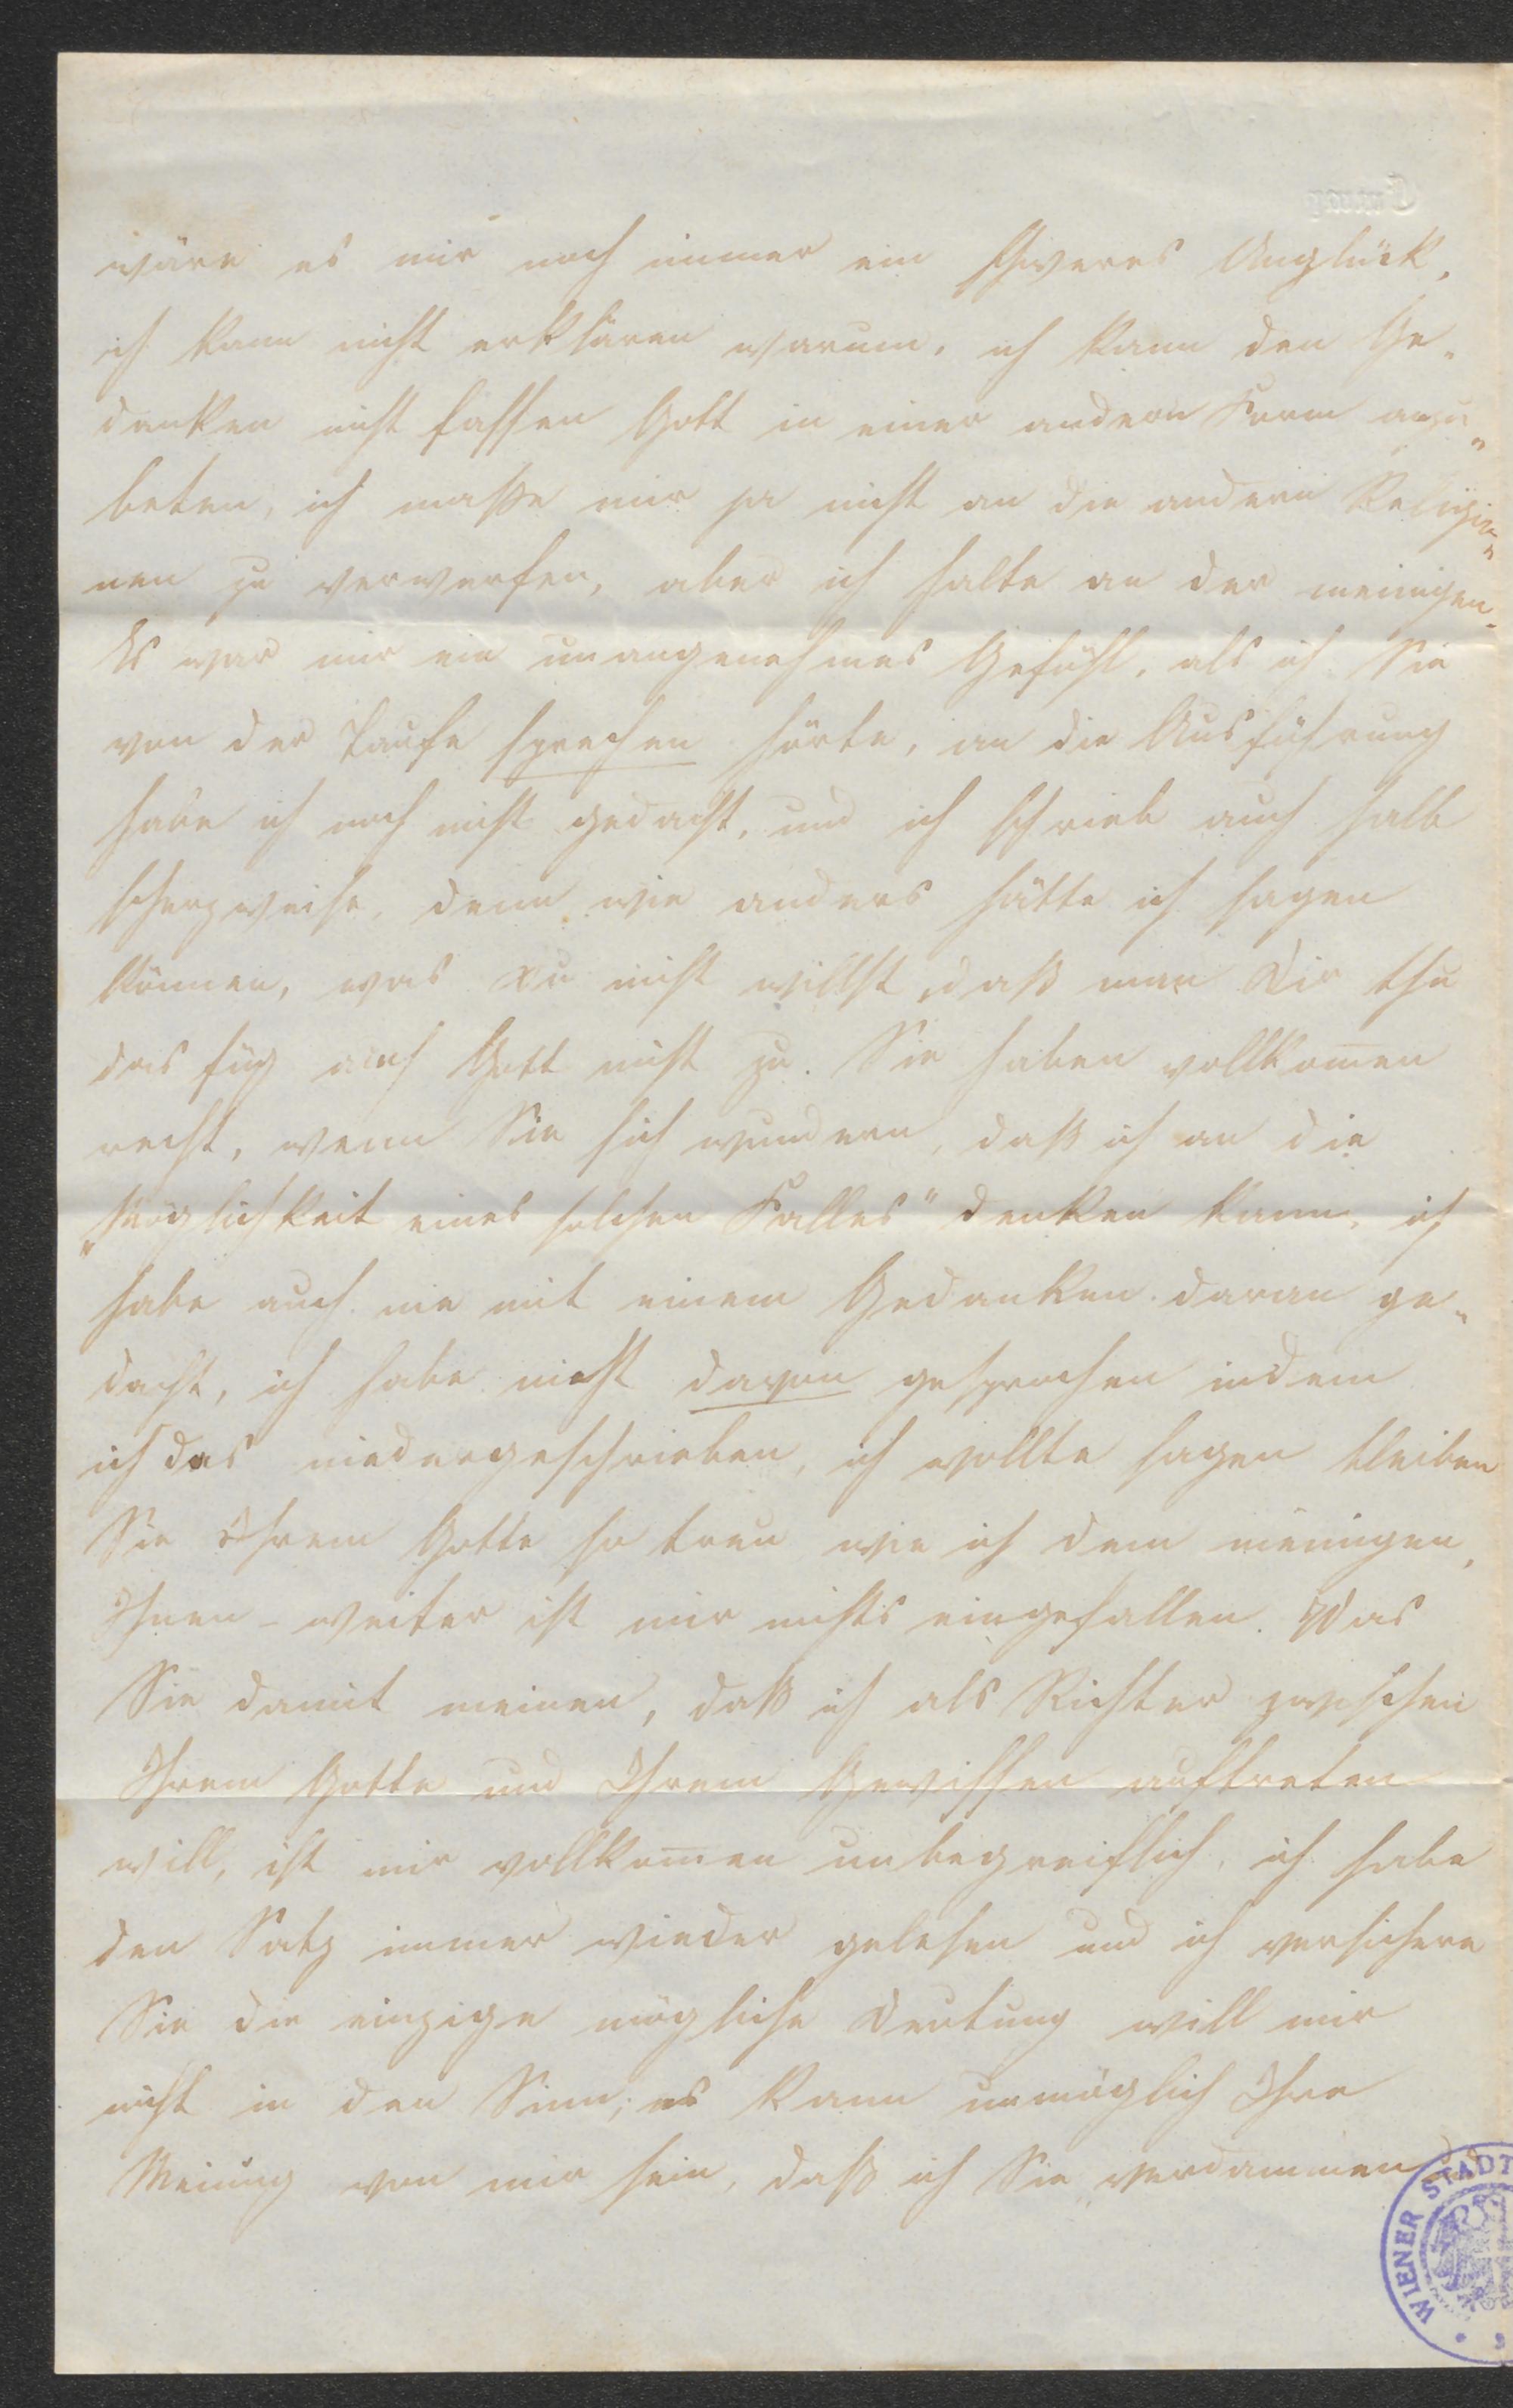 wäre es mir noch immer ein schweres Unglück,
ich kann nicht erklären warum, ich kann den Ge-
danken nicht fassen Gott in einer andern Form anzu-
beten, ich maße mir ja nicht an die andern Religio-
nen zu verwerfen, aber ich halte an der meinigen.
Es war mir ein unangenehmes Gefühl, als ich Sie
von der Taufe sprechen hörte, an die Ausführung
habe ich noch nicht gedacht, und ich schrieb auch halb
scherzweise, denn wie anders hätte ich sagen
können, was Du nicht willst, daß man Dir thu
das füg auch Gott nicht zu. Sie haben vollkom̄en
recht, wenn Sie sich wundern, daß ich an die
„Möglichkeit eines solchen Falles" denken kann, ich
habe auch nie mit einem Gedanken daran ge-
dacht, ich habe nicht davon gesprochen indem
ich das niedergeschrieben, ich wollte sagen bleiben
Sie Ihrem Gotte so treu wie ich dem meinigen,
Ihnen - weiter ist mir nichts eingefallen. Was
Sie damit meinen, daß ich als Richter zwischen
Ihrem Gotte und Ihrem Gewissen auftreten
will, ist mir vollkom̄en unbegreiflich, ich habe
den Satz immer wieder gelesen und ich versichere
Sie die einzige mögliche Deutung will mir
nicht in den Sinn; es kann unmöglich Ihre
Meinung von mir sein, daß ich Sie verdammen
WIENER STADT